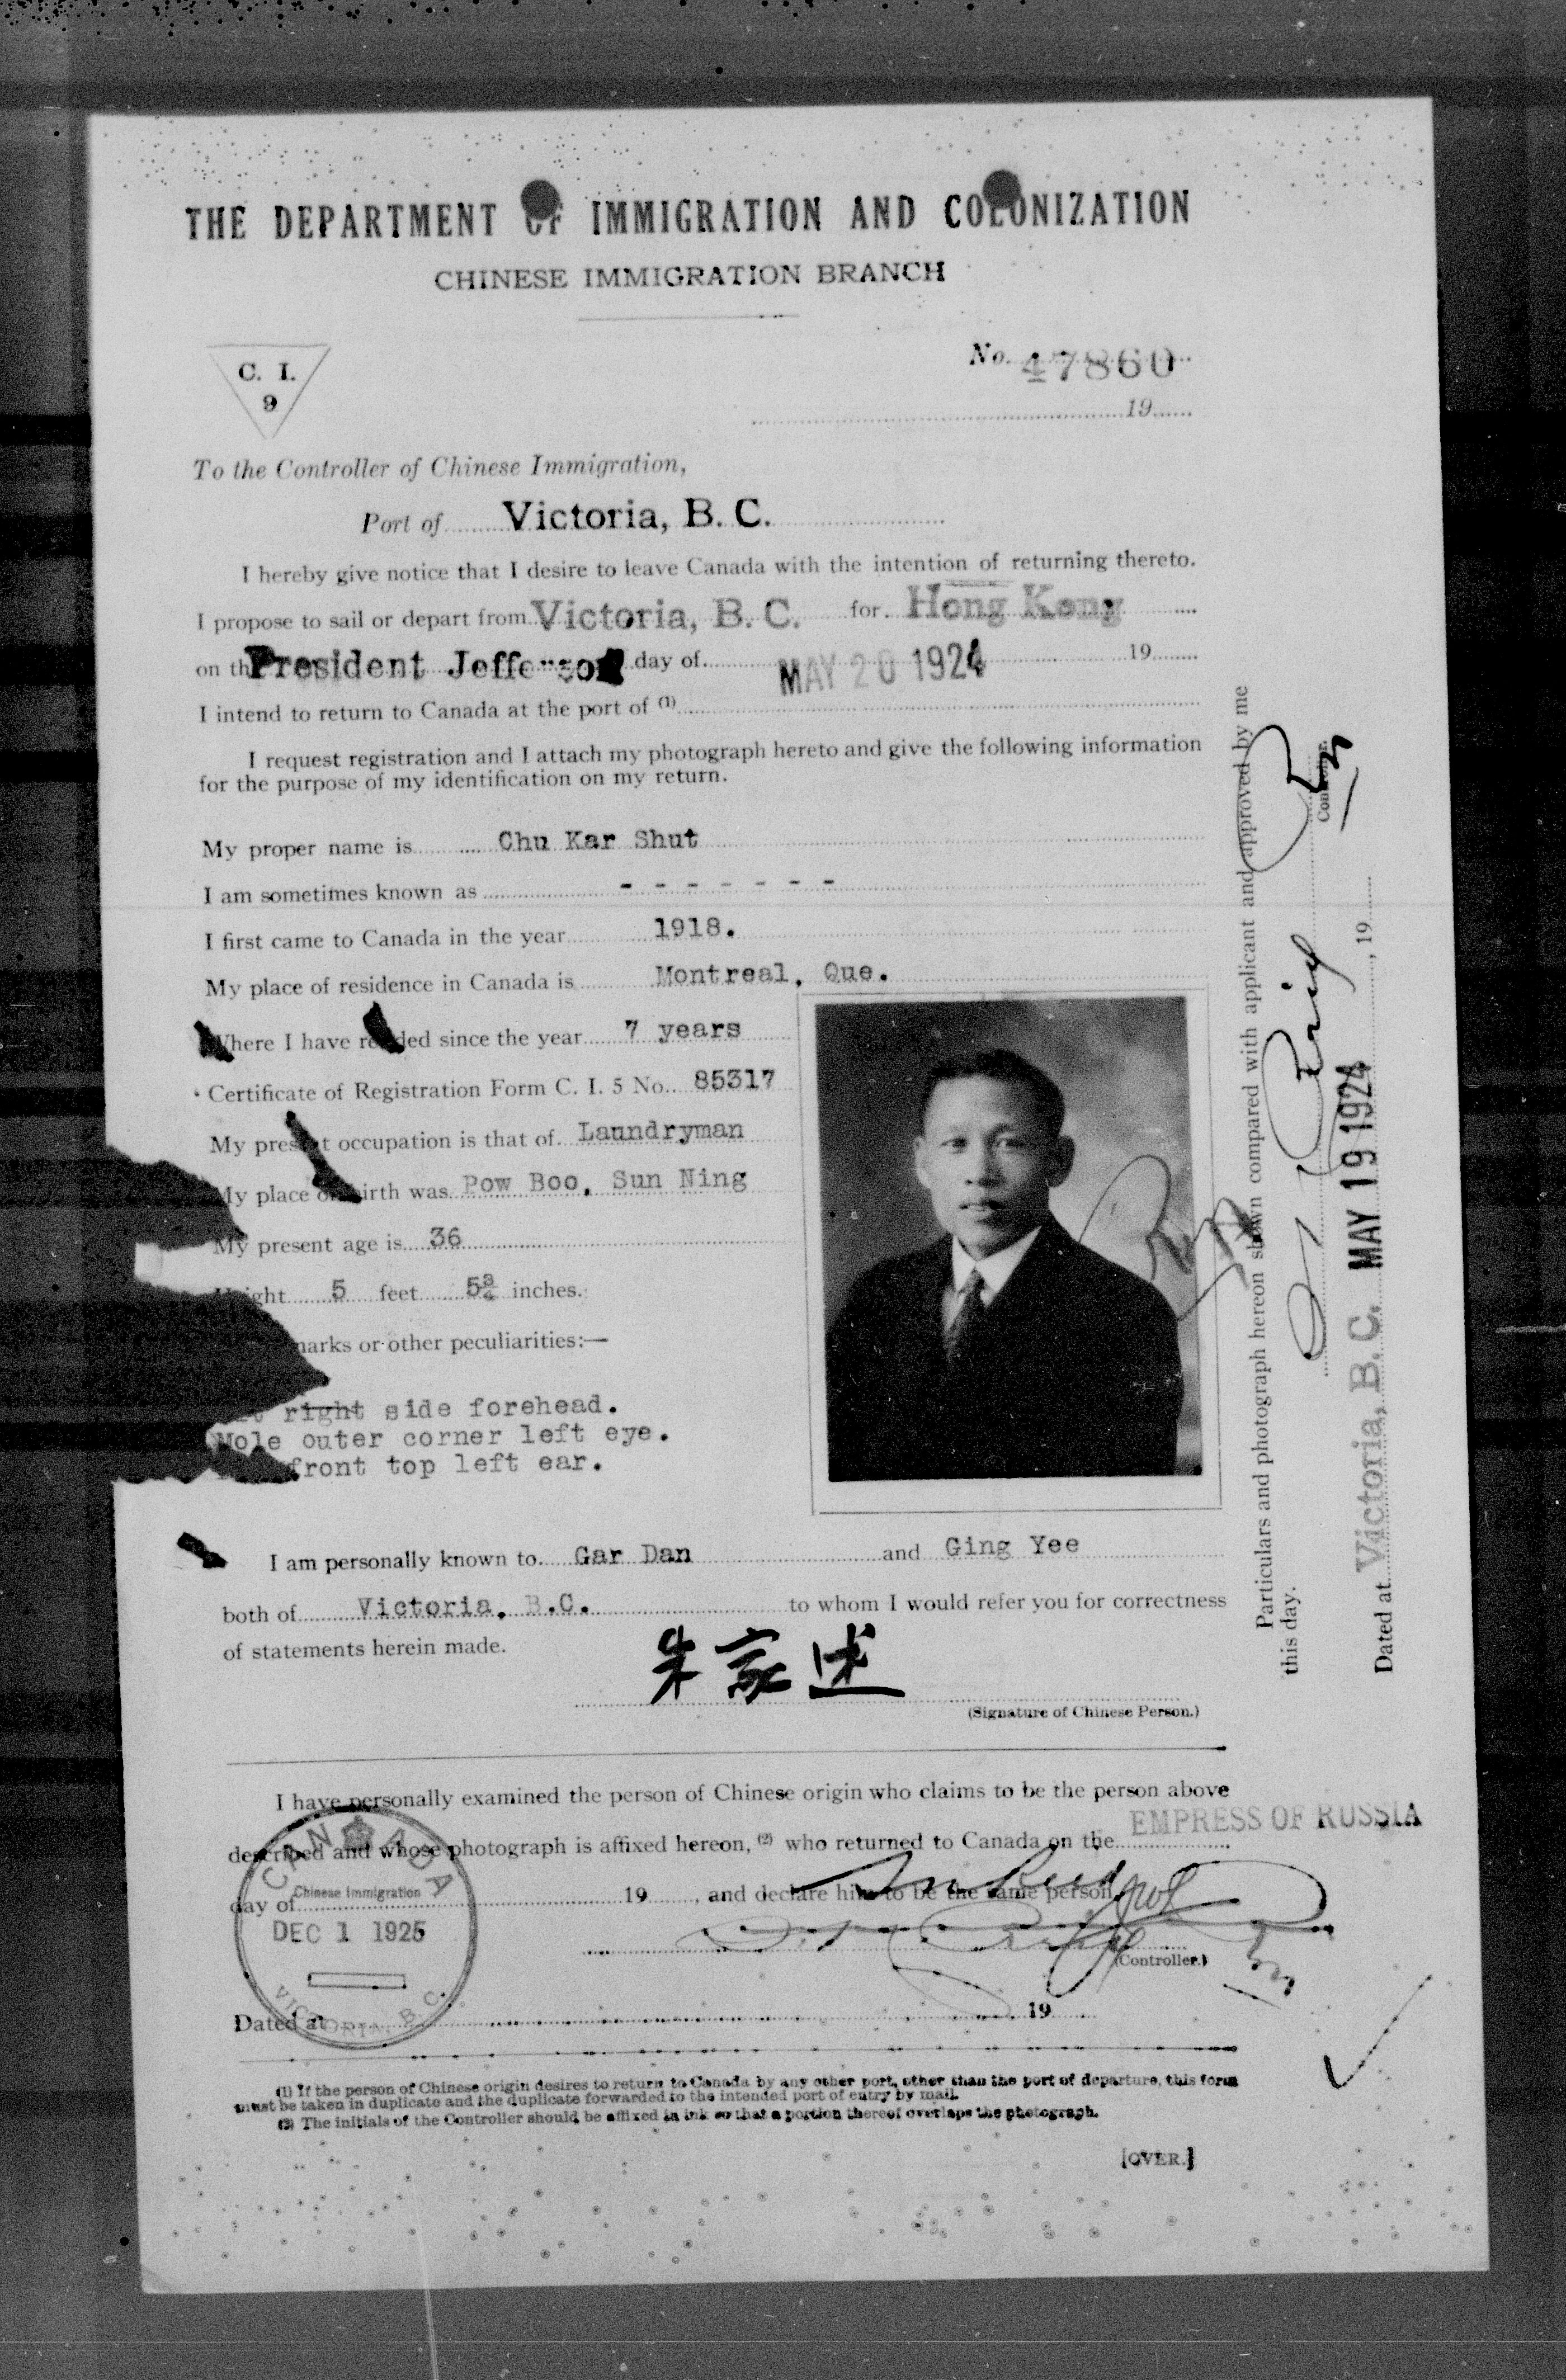 THE DEPARTMENT OF IMMIGRATION AND COLONIZATION
CHINESE IMMIGRATION BRANCH
C. I.
9
No. 47860
19
To the Controller of Chinese Immigration,
Port of Victoria, B. C.
I hereby give notice that I desire to leave Canada with the intention of returning thereto.
I propose to sail or depart from Victoria, B. C. for Hong Kong
on the President Jefferson day of MAY 20 1924 19
I intend to return to Canada at the port of (1)
I request registration and I attach my photograph hereto and give the following information
for the purpose of my identification on my return.
My proper name is Chu Kar Shut
I am sometimes known as - - - - - - -
I first came to Canada in the year 1918.
My place of residence in Canada is Montreal, Que.
Where I have resided since the year 7 years
Certificate of Registration Form C. I. 5 No. 85317
My present occupation is that of Laundryman
My place of birth was Pow Boo, Sun Ning
My present age is 36
Height 5 feet 5¾ inches.
marks or other peculiarities:—
right side forehead.
Mole outer corner left eye.
front top left ear.
I am personally known to Gar Dan and Ging Yee
both of Victoria, B.C. to whom I would refer you for correctness
of statements herein made.
朱家述
(Signature of Chinese Person.)
I have personally examined the person of Chinese origin who claims to be the person above
described and whose photograph is affixed hereon, (2) who returned to Canada on the EMPRESS OF RUSSIA
day of 19 , and declare him to be the same person
(Controller.)
Dated at 19
CANADA
Chinese Immigration
DEC 1 1925
VICTORIA, B.C.
(1) If the person of Chinese origin desires to return to Canada by any other port, other than the port of departure, this form
must be taken in duplicate and the duplicate forwarded to the intended port of entry by mail.
(2) The initials of the Controller should be affixed in ink so that a portion thereof overlaps the photograph.
[OVER.]
Particulars and photograph hereon shown compared with applicant and approved by me
this day.
Controller.
Dated at Victoria, B. C. MAY 19 1924 , 19